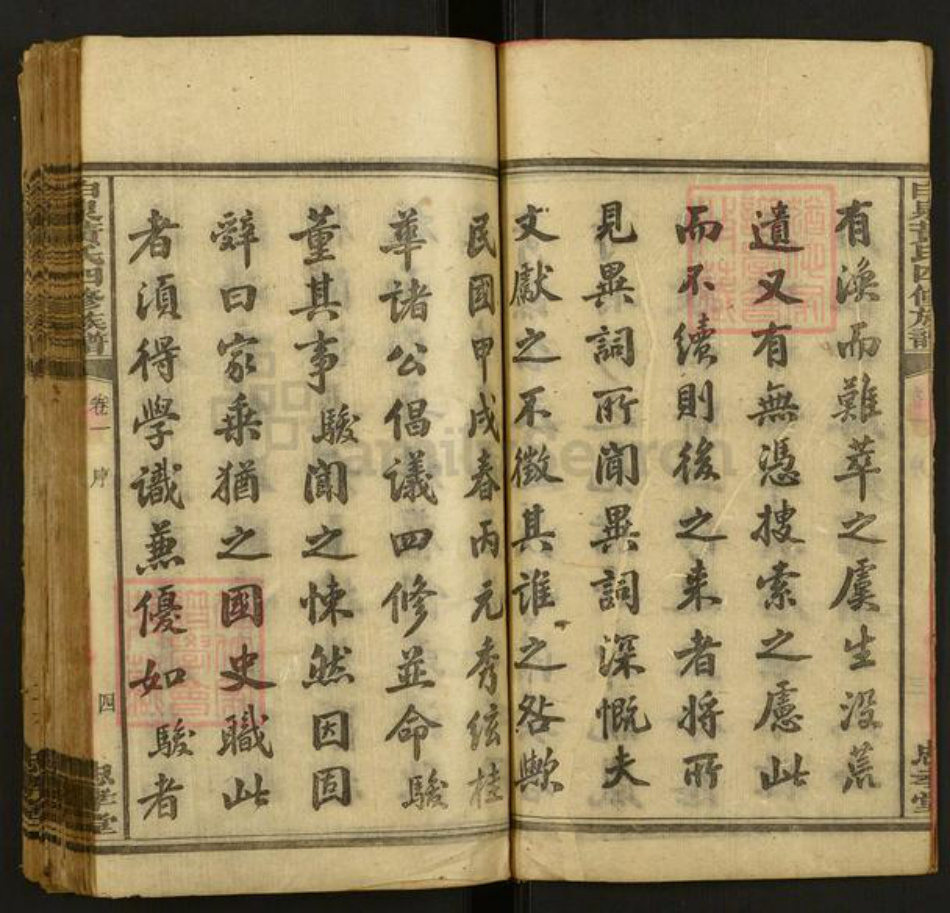 有渙而難萃之虞生沒荒
遺又有無憑搜索之慮此
而不續則後之来者將所
見異詞所聞異詞深慨夫
文獻之不徵其誰之咎歟
民國甲戍春丙元秀絃桂
華諸公倡議四修並命駿
董其事駿聞之悚然因固
辭曰家乘猶之國史職此
者須得學識兼優如駿者
黃氏四修族譜
卷一
序
四
思孝堂